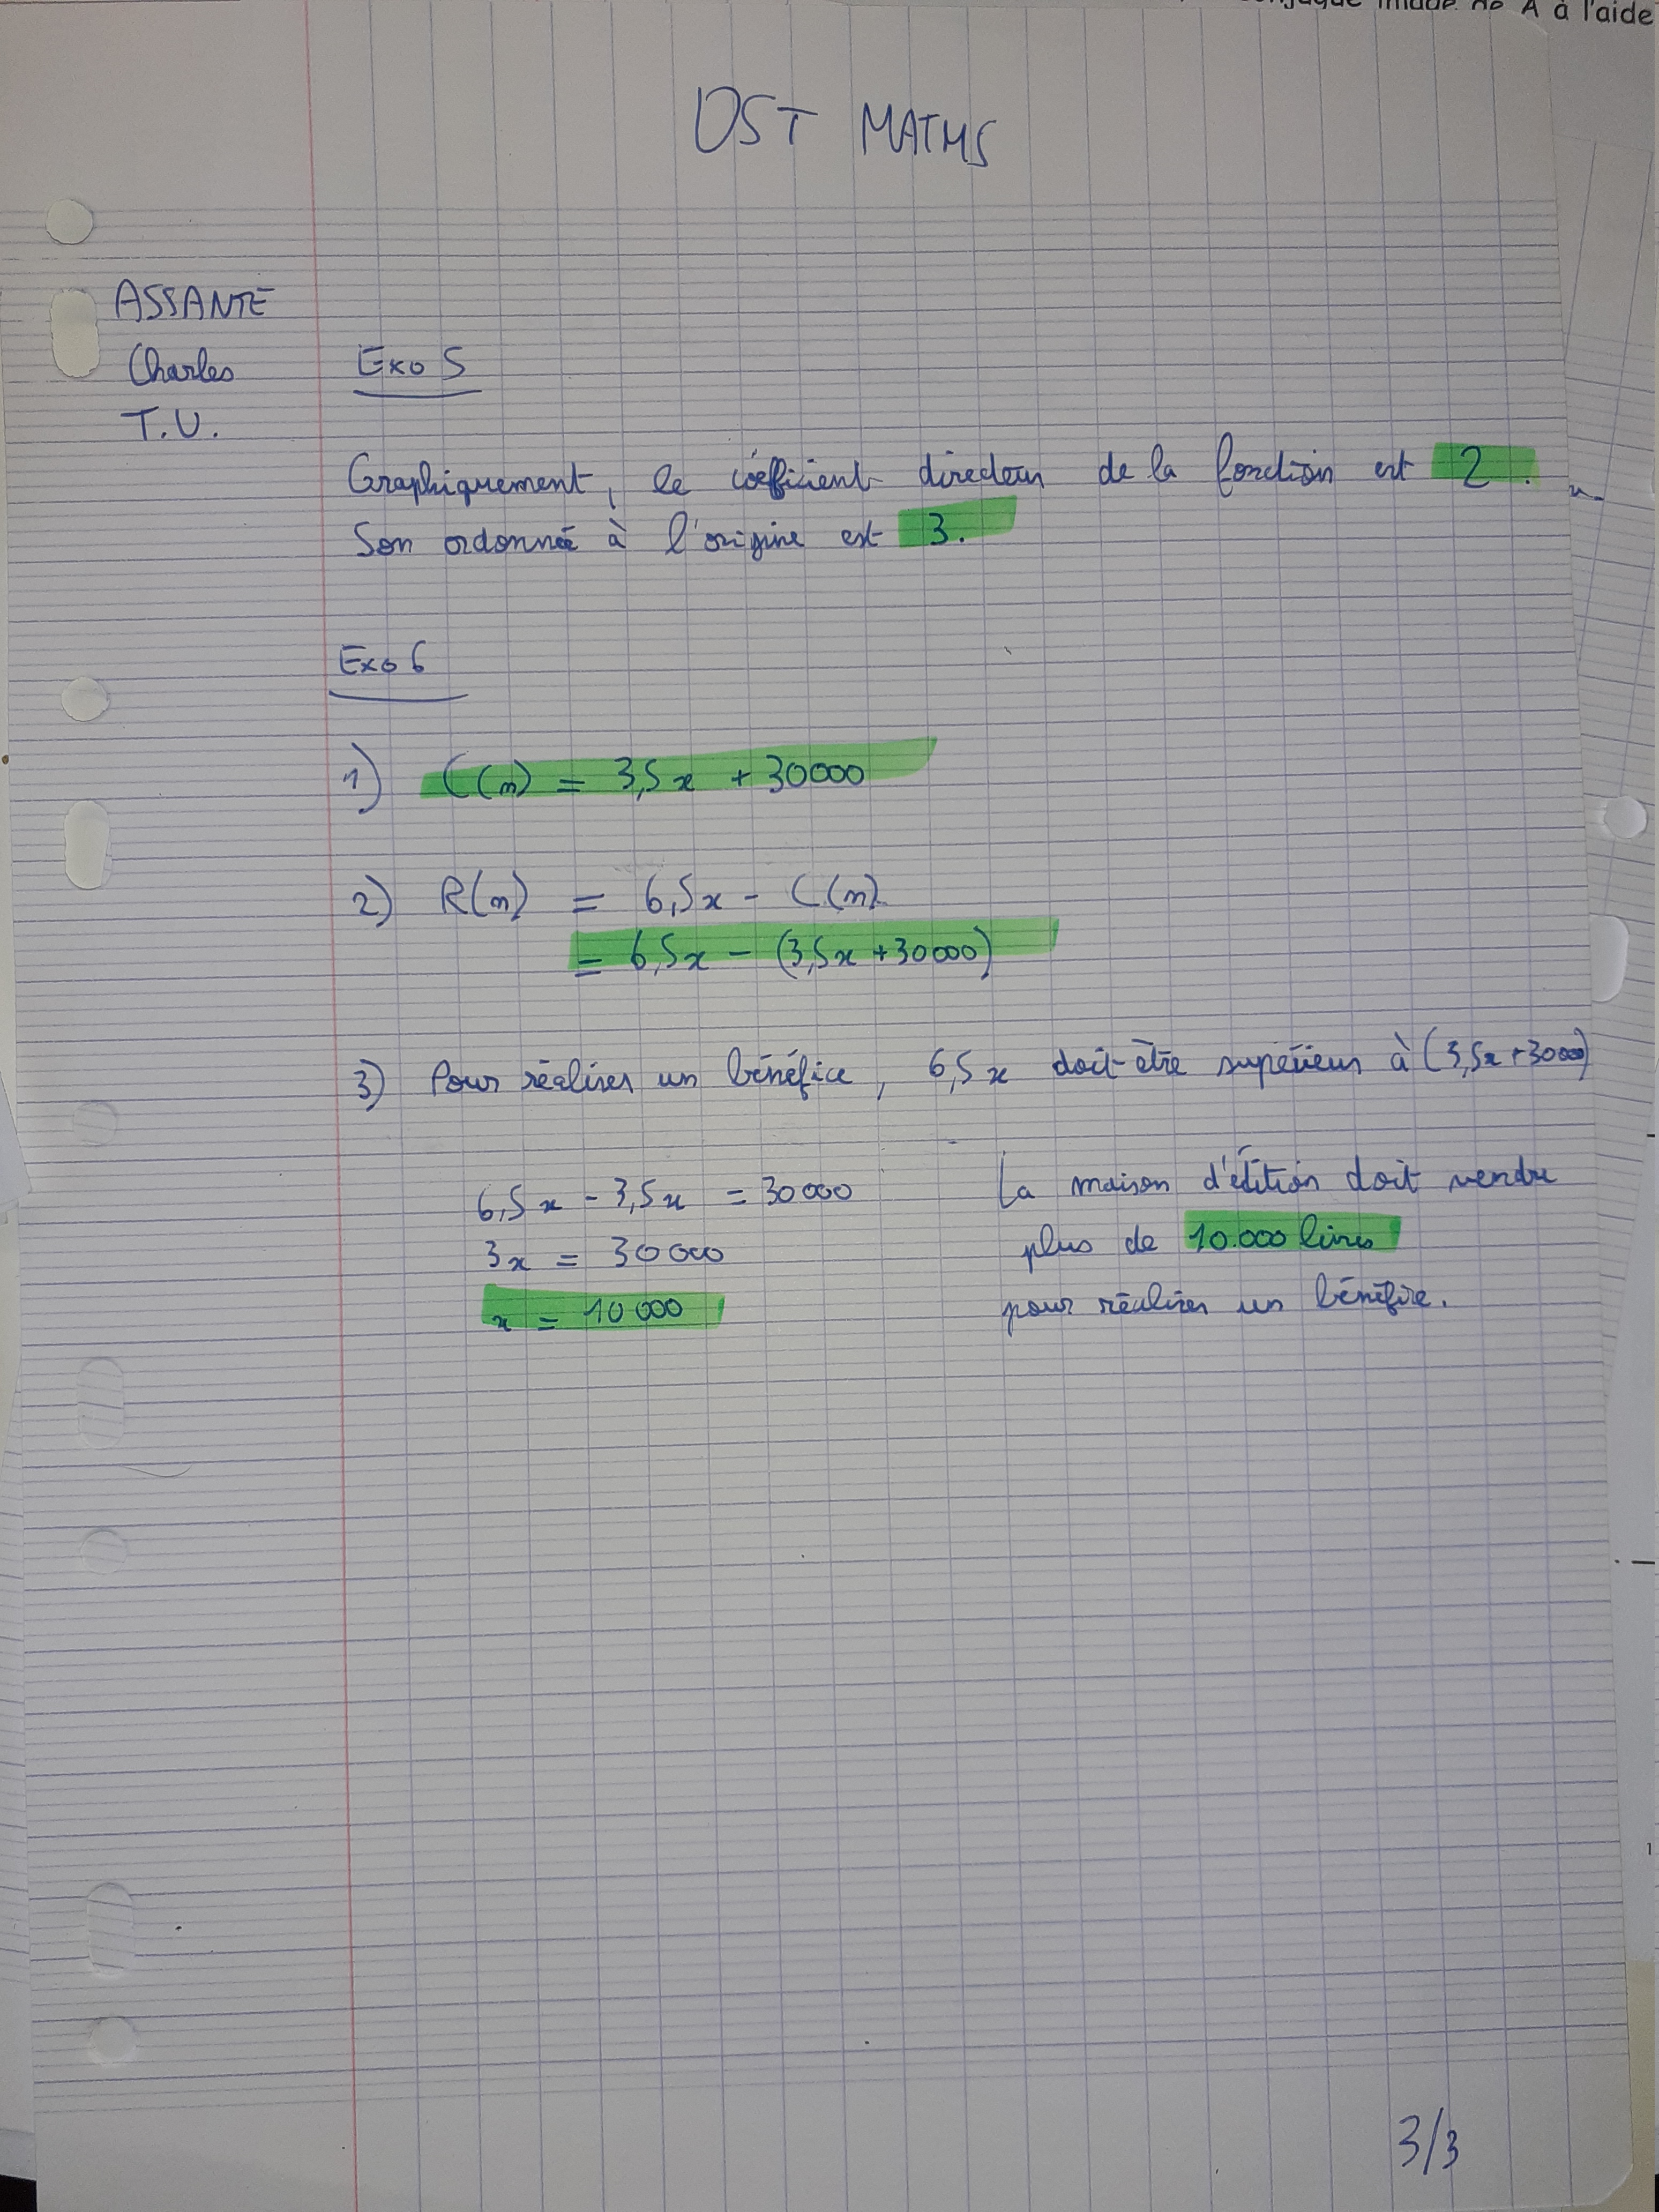 DST MATHS
ASSANTE
Charles
T.U.
Exo 5
Graphiquement, le coefficient directeur de la fonction est 2.
Son ordonnée à l'origine est 3.
Exo 6
1) C(n) = 3,5x + 30000
2) R(n) = 6,5x - C(n)
= 6,5x - (3,5x + 30000)
3) Pour réaliser un bénéfice, 6,5x doit être supérieur à (3,5x + 30000)
6,5x - 3,5x = 30000
3x = 30000
x = 10 000
La maison d'édition doit vendre
plus de 10.000 livres
pour réaliser un bénéfice.
3/3
à l'aide